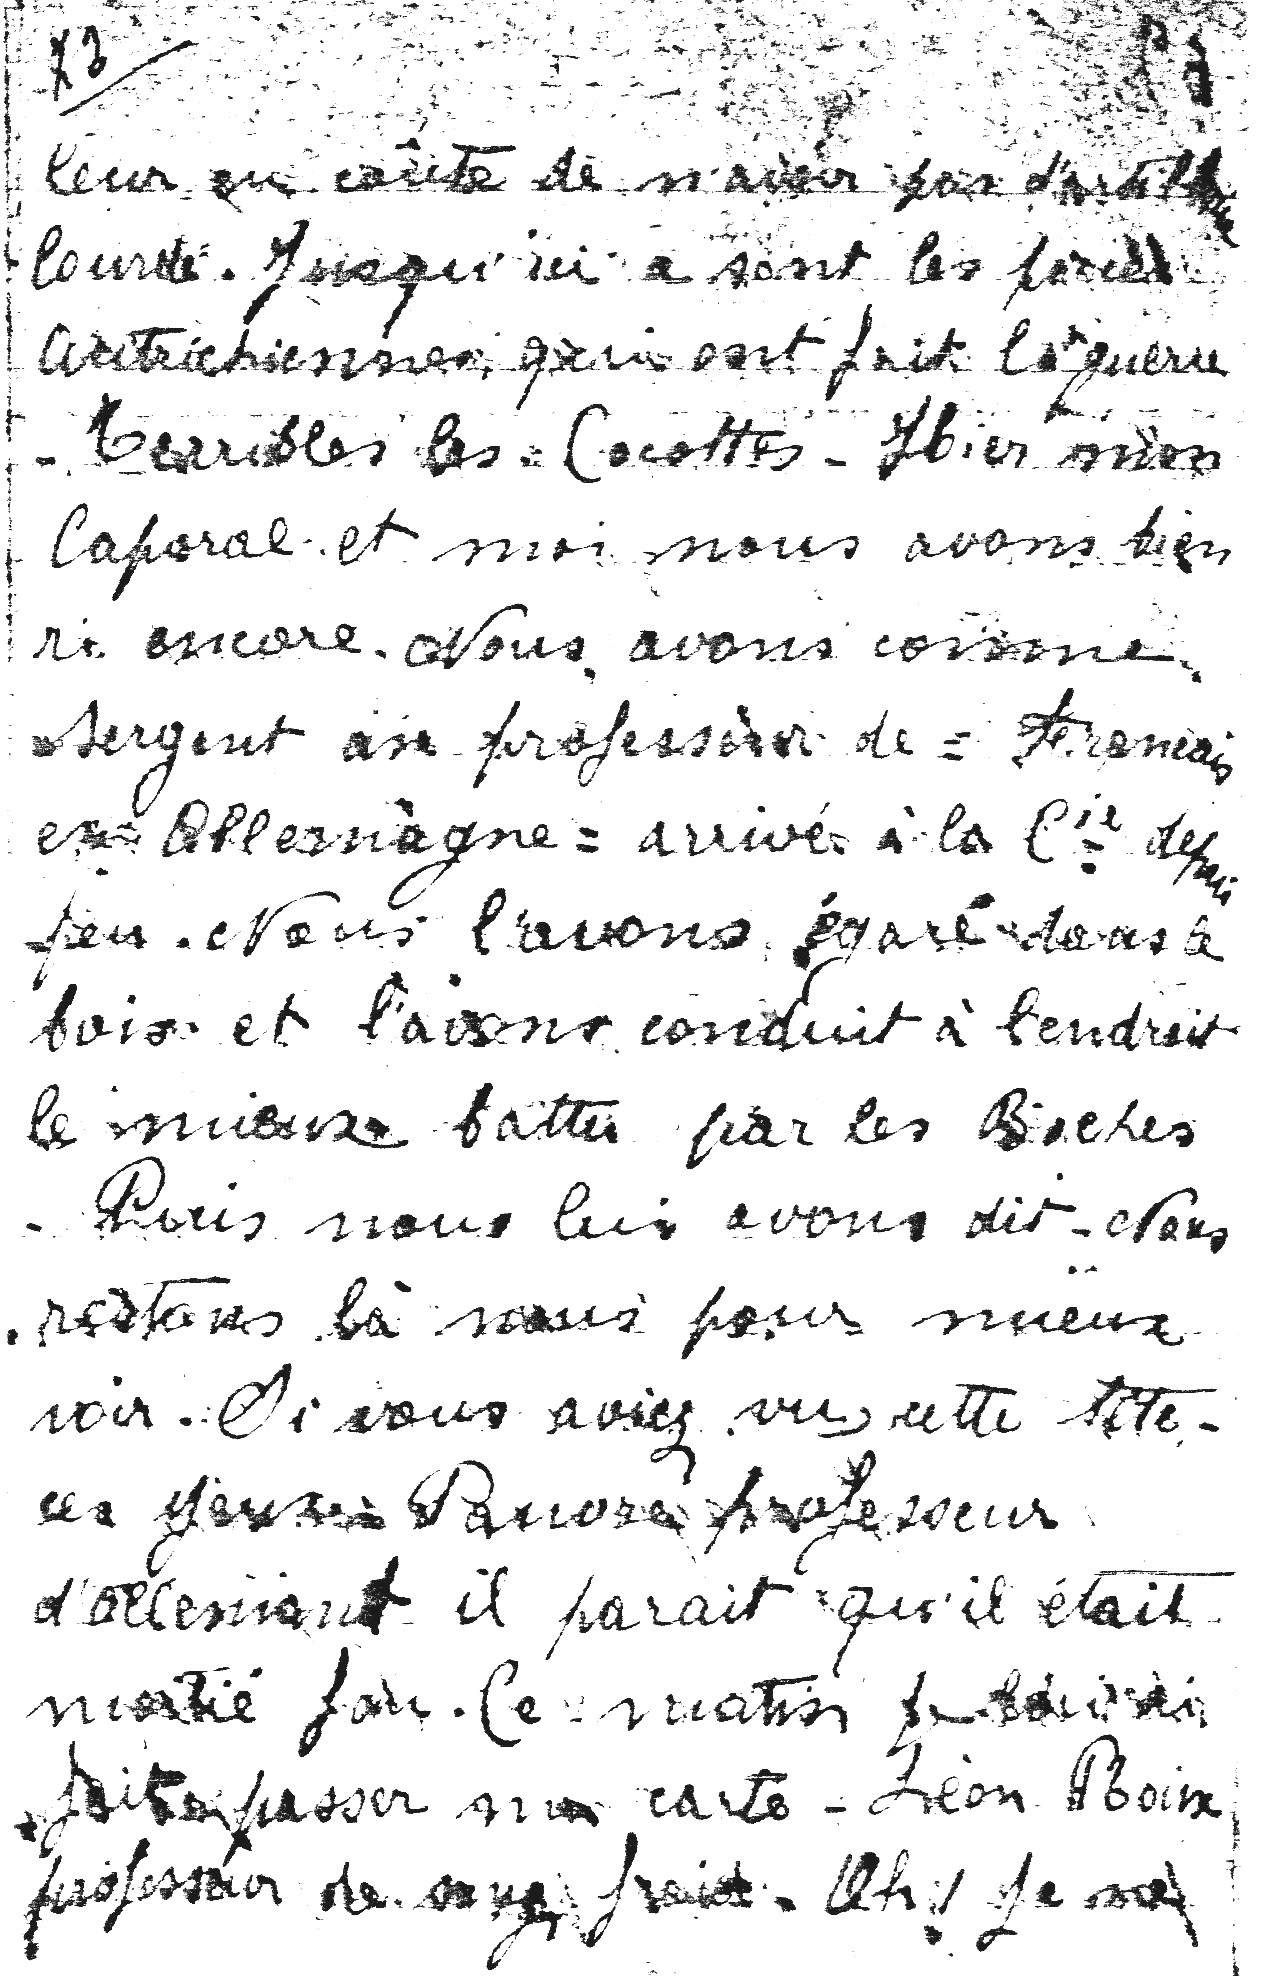 73
leur en coûte de n'avoir pas d'artillerie
lourde. Jusqu'ici ce sont les pièces
Autrichiennes, qui ont fait la guerre
- Terribles les = Cocottes - Hier mon
Caporal et moi nous avons bien
ri encore. Nous avons comme
sergent un professeur de = Francais
en Allemagne = arrivé à la Cie depuis
peu. Nous l'avons égaré dans le
bois et l'avons conduit à l'endroit
le mieux battu par les Boches
- Puis nous lui avons dit - Nous
restons là nous pour mieux
voir. Si vous aviez vu cette tête -
ces yeux = Pauvre professeur
d'allemand il parait qu'il était
moitié fou. Ce matin je lui ai
fait passer ma carte - Léon Boix
professeur de sang froid. Oh! Je ne